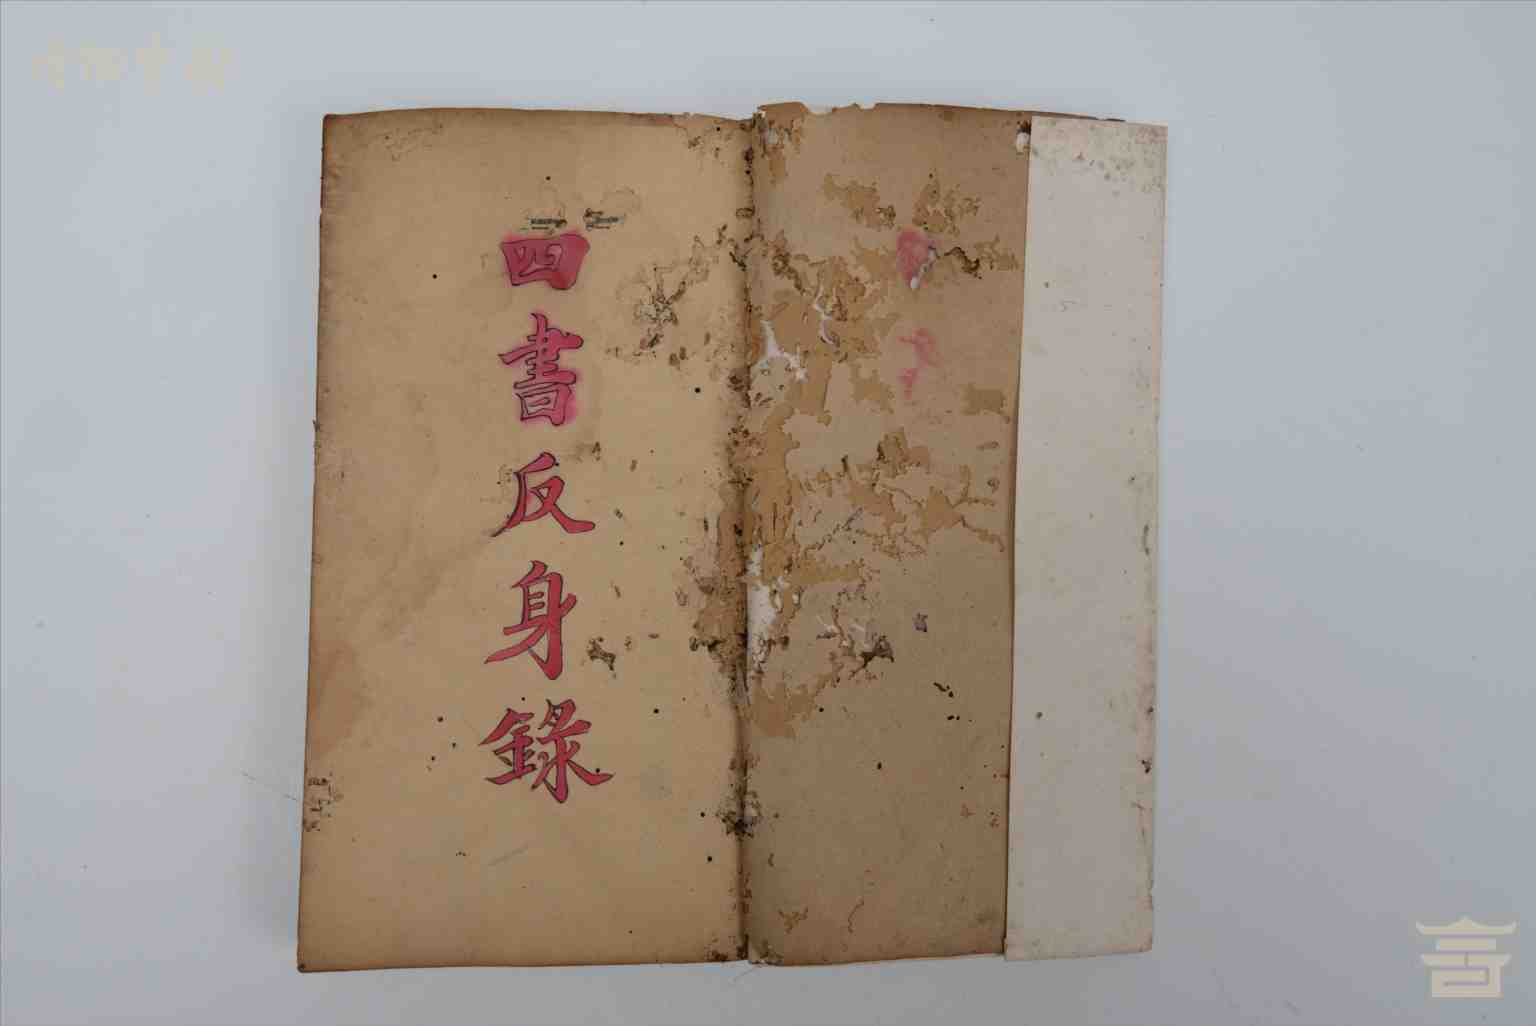 四書反身錄